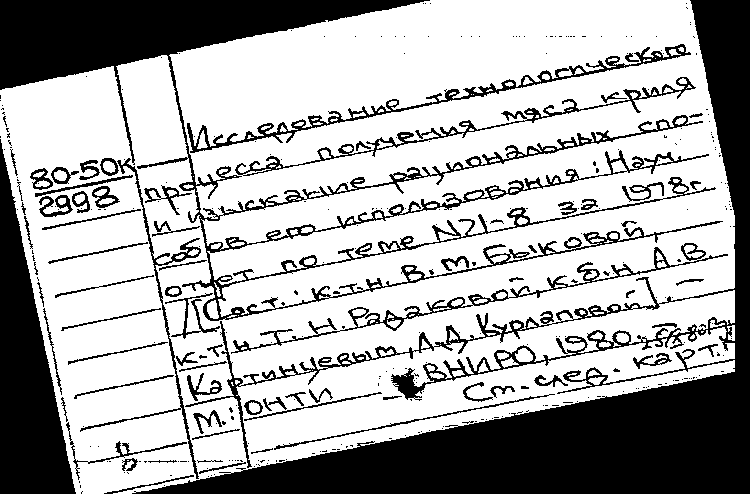 Исследование технологического
80-50к
2998
процесса получения мяса криля
и изыскание рациональных спо-
собов его использования: Науч.
отчет по теме N71-8 за 1978г.
/[Сост.: к.т.н. В.М. Быковой,
к.т.н. Т.Н. Радаковой, к.б.н. А.В.
Картинцевым, Л.Д. Курлаповой]. —
М.: ОНТИ ВНИРО, 1980.
См. след. карт.